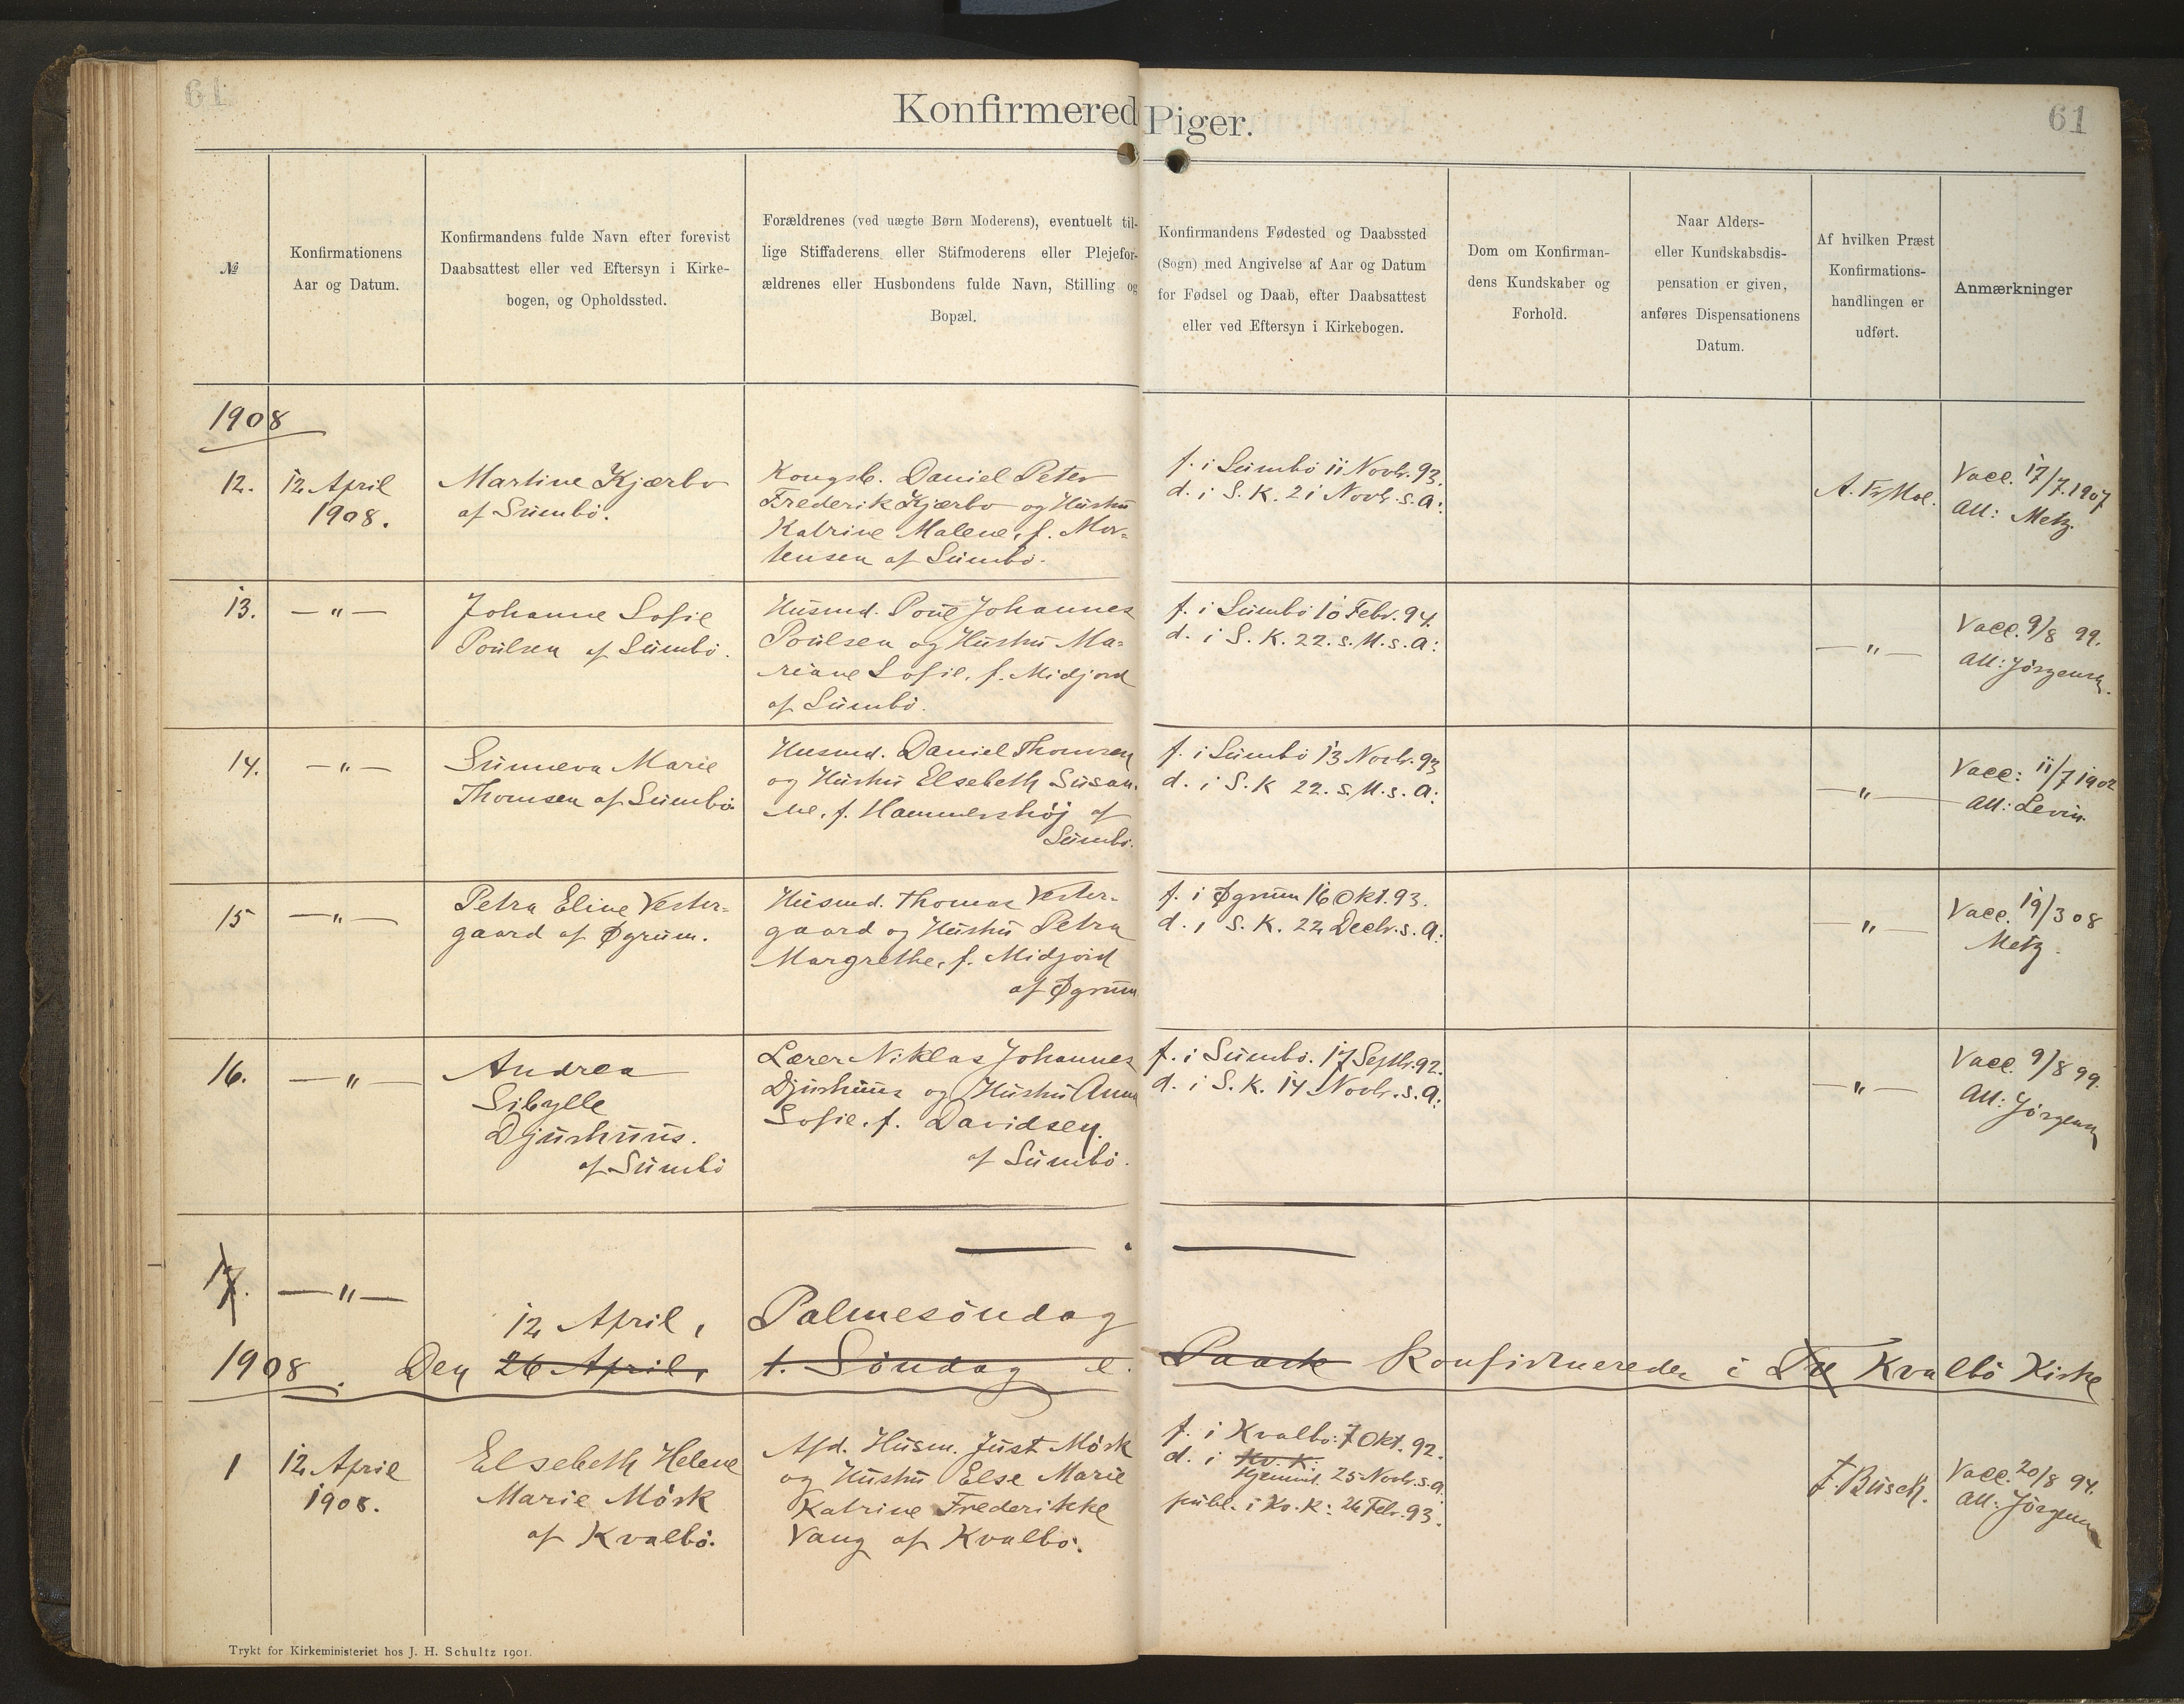 61
61
Konfirmered Piger.
№
Konfirmationens
Aar og Datum.
Konfirmandens fulde Navn efter forevist
Daabsattest eller ved Eftersyn i Kirke-
bogen, og Opholdssted.
Forældrenes (ved uægte Børn Moderens), eventuelt til-
lige Stiffaderens eller Stifmoderens eller Plejefor-
ældrenes eller Husbondens fulde Navn, Stilling og
Bopæl.
Konfirmandens Fødested og Daabssted
(Sogn) med Angivelse af Aar og Datum
for Fødsel og Daab, efter Daabsattest
eller ved Eftersyn i Kirkebogen.
Dom om Konfirman-
dens Kundskaber og
Forhold.
Naar Alders-
eller Kundskabsdis-
pensation er given,
anføres Dispensationens
Datum.
Af hvilken Præst
Konfirmations-
handlingen er
udført.
Anmærkninger
1908
12.
12 April
1908.
Martine Kjærbo
af Sumbö.
Kongsb. Daniel Peter
Frederik Kjærbo og Hustru
Katrine Malene, f. Mor-
tensen af Sumbö.
f. i Sumbö 11 Novbr. 93.
d. i S. K. 21 Novbr. s. A:
Vacc. 17/7 1907
Att: Metz.
13.
— " —
Johanne Sofie
Poulsen af Sumbö.
Husmd. Poul Johannes
Poulsen og Hustru Ma-
riane Sofie, f. Midjord
af Sumbö.
f. i Sumbö 10 Febr. 94.
d. i S. K. 22. s. M. s. A:
— " —
Vacc. 9/8 99.
Att: Jörgensen.
14.
— " —
Sunneva Marie
Thomsen af Sumbö
Husmd. Daniel Thomsen
og Hustru Elsebeth Susan-
ne, f. Hammershöj af
Sumbö.
f. i Sumbö 13 Novbr. 93
d. i S. K 22. s. M. s. A:
— " —
Vacc: 11/7 1902
Att: Levin
15
— " —
Petra Eline Vester-
gaard af Øgrum.
Husmd. Thomas Vester-
gaard og Hustru Petra
Margrethe, f. Midjord
af Øgrum
f. i Øgrum 16 Okt. 93.
d. i S. K. 22 Decbr. s. A:
— " —
Vacc. 19/3 08
Metz.
16.
— " —
Andrea
Sibylle
Djurhuus.
af Sumbö
Lærer Niklas Johannes
Djurhuus og Hustru Anna
Sofie, f. Davidsen.
af Sumbö.
f. i Sumbö. 17 Septbr. 92.
d. i S. K. 14 Novbr. s. A:
— " —
Vacc. 9/8 99.
Att: Jörgensen
17. — " —
12 April, Palmesöndag
1908. Den 26 April, 1. Söndag e. Paaske Konfirmereder i Kvalbö Kirke
1
12 April
1908.
Elsebeth Helene
Marie Mörk
af Kvalbö.
Afd. Husm. Just Mörk
og Hustru Else Marie
Katrine Frederikke
Vang af Kvalbö.
f. i Kvalbö: 7 Okt. 92.
d. i Kv. K:
Hjemmet. 25 Novbr. s. A
publ. i Kv. K: 26 Febr. 93.
F. Busch.
Vacc. 20/8 94.
Att: Jörgensen
Trykt for Kirkeministeriet hos J. H. Schultz 1901.